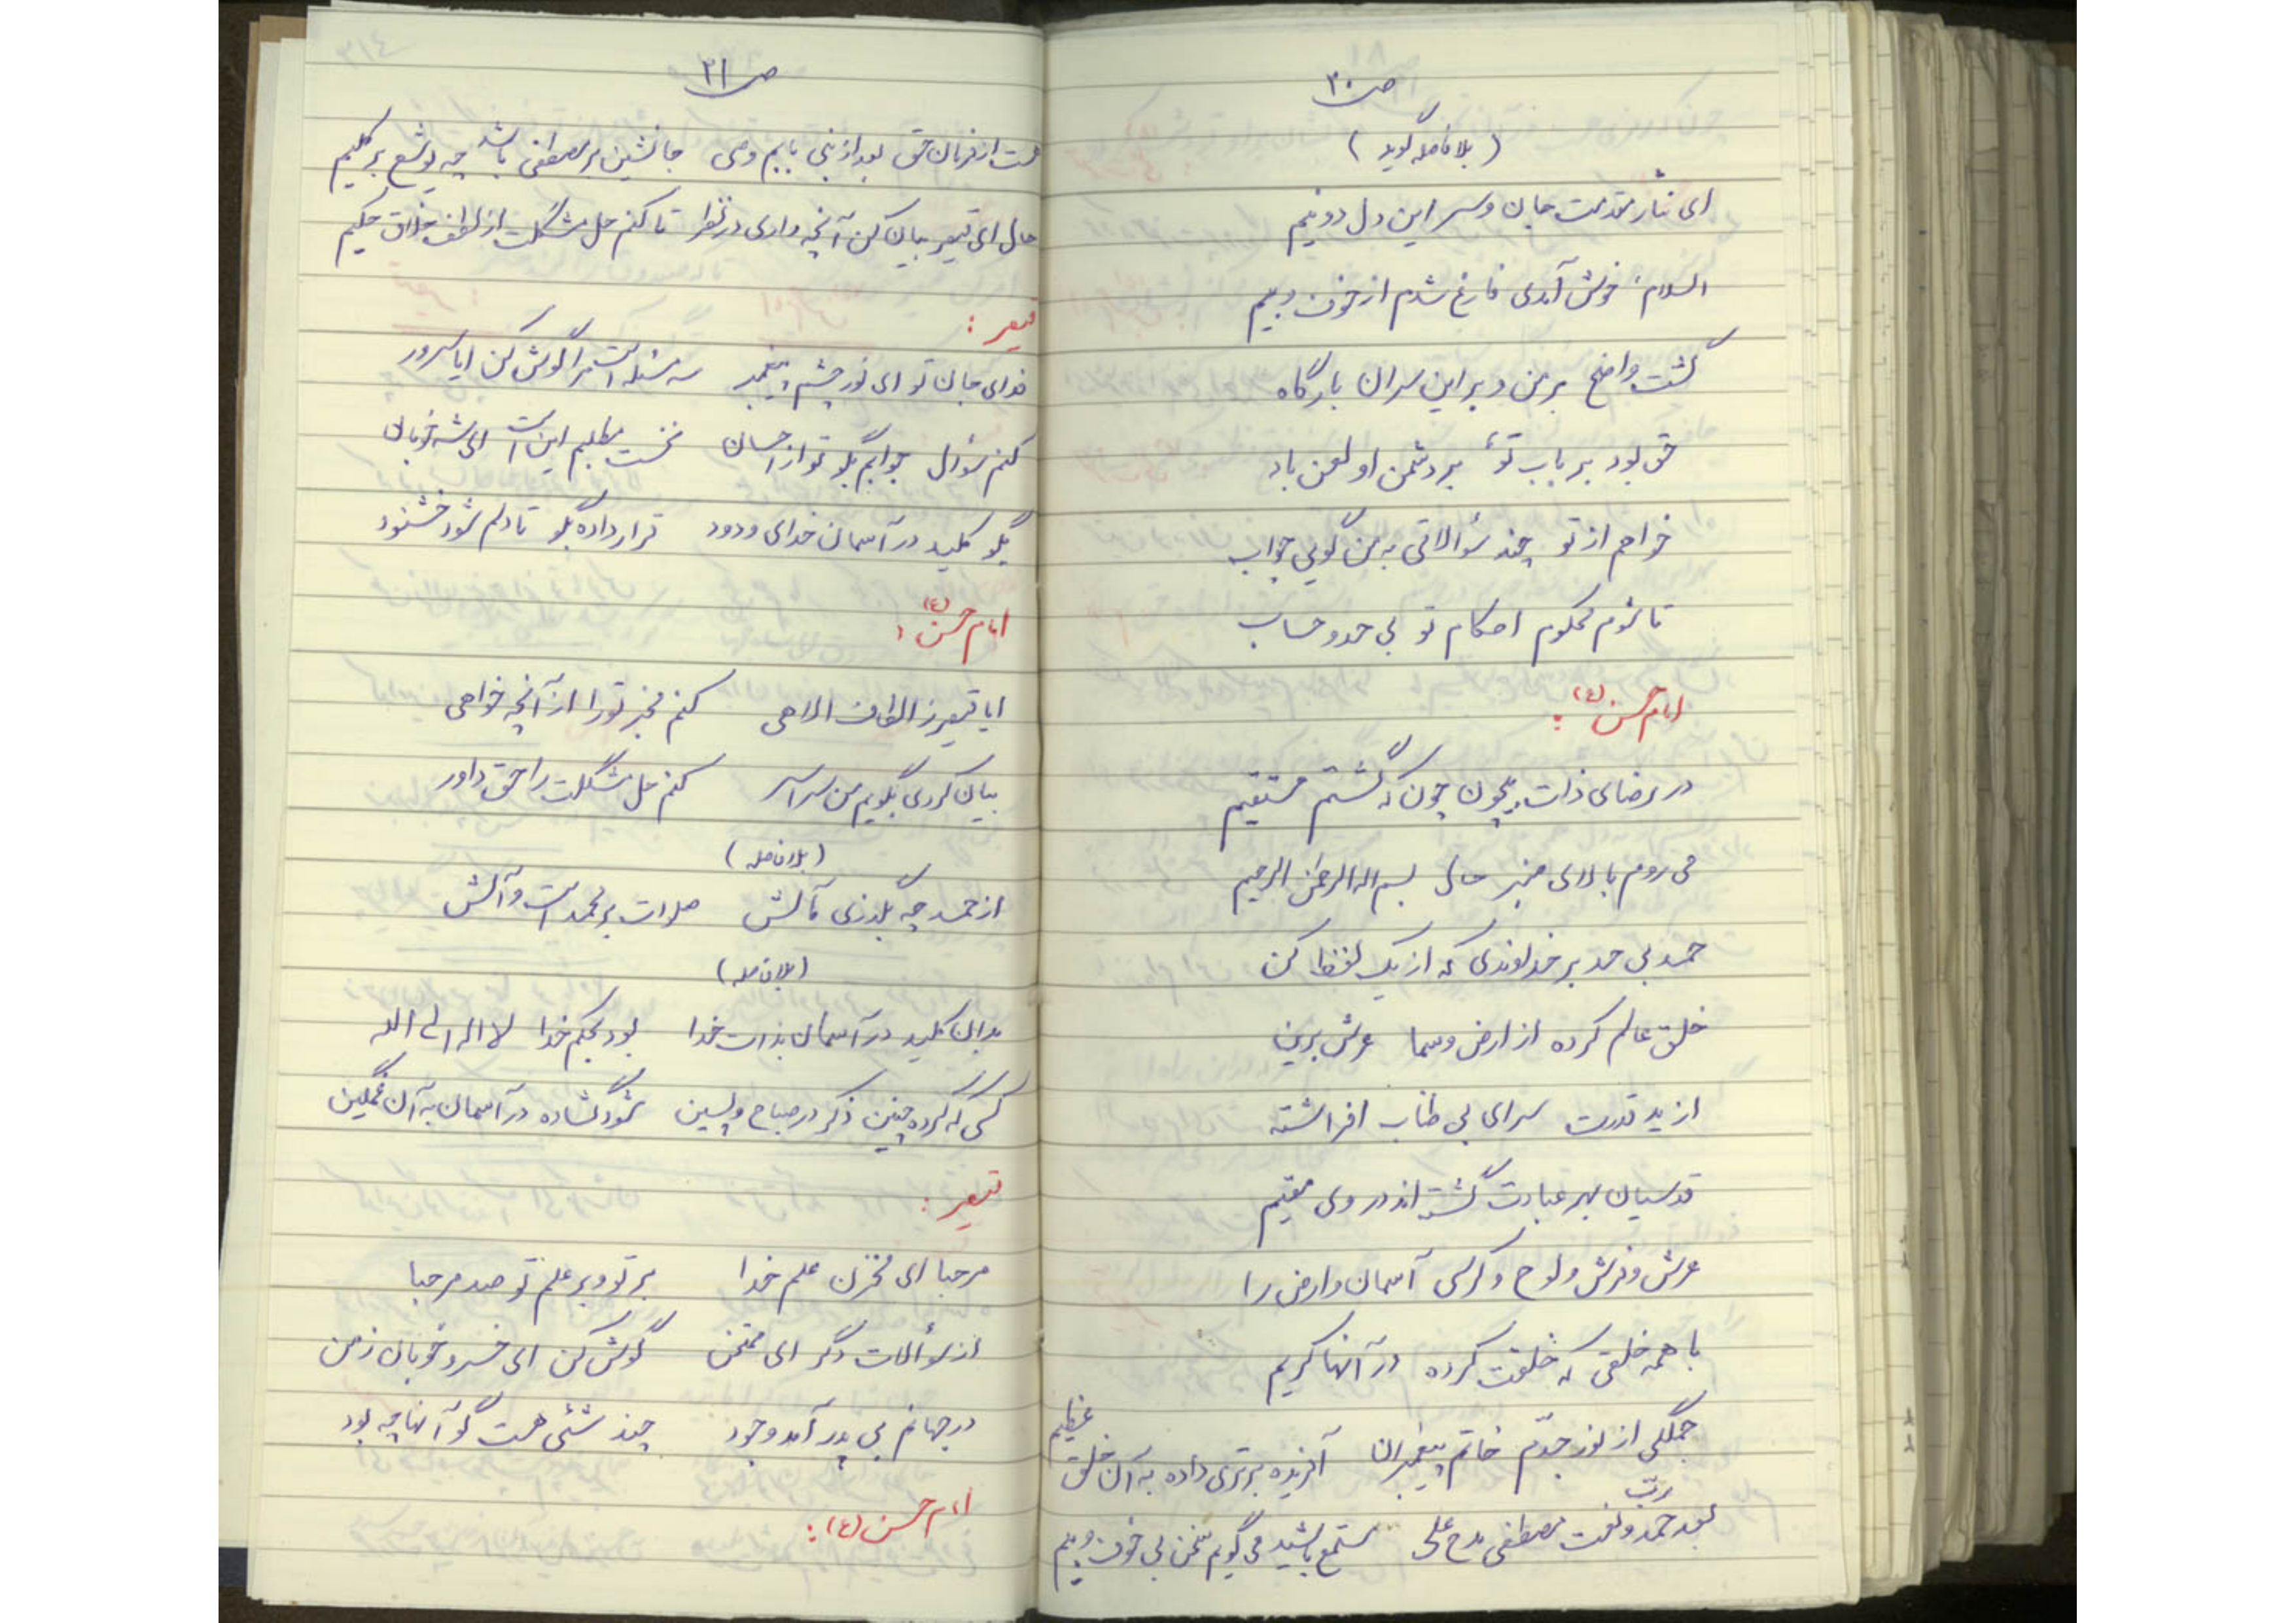 ص۳۰
(بلافاصله گوید)
ای نثار مقدمت جان و سر این دل دو نیم
السلام، خوش آمدی فارغ شدم از خوف و بیم
گشت واضح بر من و بر این سران بارگاه
حق بود بر باب تو، بر دشمن او لعن باد
خواهم از تو چند سؤالاتی به من گویی جواب
تا شوم محکوم احکام تو بی حد و حساب
امام حسن (ع):
در رضای ذات بیچون چون که گشتم مستقیم
می روم بالای منبر حال بسم اله الرحمن الرحیم
حمد بی حد بر خداوندی که از یک لفظ کن
خلق عالم کرده از ارض و سما عرش برین
از ید قدرت سرای بی طناب افراشته
قدسیان بهر عبادت گشته اند در وی مقیم
عرش و فرش و لوح و کرسی آسمان و ارض را
با همه خلقی که خلقت کرده در آنها کریم
جملگی از نور جدّم خاتم پیغمبران آفریده برتری داده به آن خلق عظیم
بعد حمد ربّ و نعت مصطفی مدح علی مستمع باشید می گویم سخن بی خوف و بیم
ص۳۱
هست از فرمان حق بعد از نبی بابم وصی جانشین بر مصطفی باشد چه یوشع بر کلیم
حال ای قیصر بیان کن آنچه داری در نظر تا کنم حل مشکلت از لطف خلاق حکیم
قیصر:
فدای جان تو ای نور چشم پیغمبر سه مسئله است مرا گوش کن ایا سرور
کنم سؤال جوابم بگو تو از احسان نخست مطلبم این است ای شه خوبان
بگو کلید در آسمان خدای ودود قرار داده بگو تا دلم شود خشنود
امام حسن (ع):
ایا قیصر ز الطاف الاهی کنم مخبر تو را از آنچه خواهی
بیان کردی بگویم من سراسر کنم حل مشکلت را حق داور
(بلافاصله)
از حمد چه بگذری مآلش صلوات بر محمد است و آلش
(بلافاصله)
بدان کلید در آسمان بذات خدا بود بحکم خدا لا اله الی الله
کسی که کرده چنین ذکر در صباح و پسین شود گشاده در آسمان به آن غمگین
قیصر:
مرحبا ای مخزن علم خدا بر تو و بر علم تو صد مرحبا
از سؤالات دگر ای ممتحن گوش کن ای خسرو خوبان زمن
در جهانم بی پدر آمد وجود چند شئی هست گو آنها چه بود
امام حسن (ع):